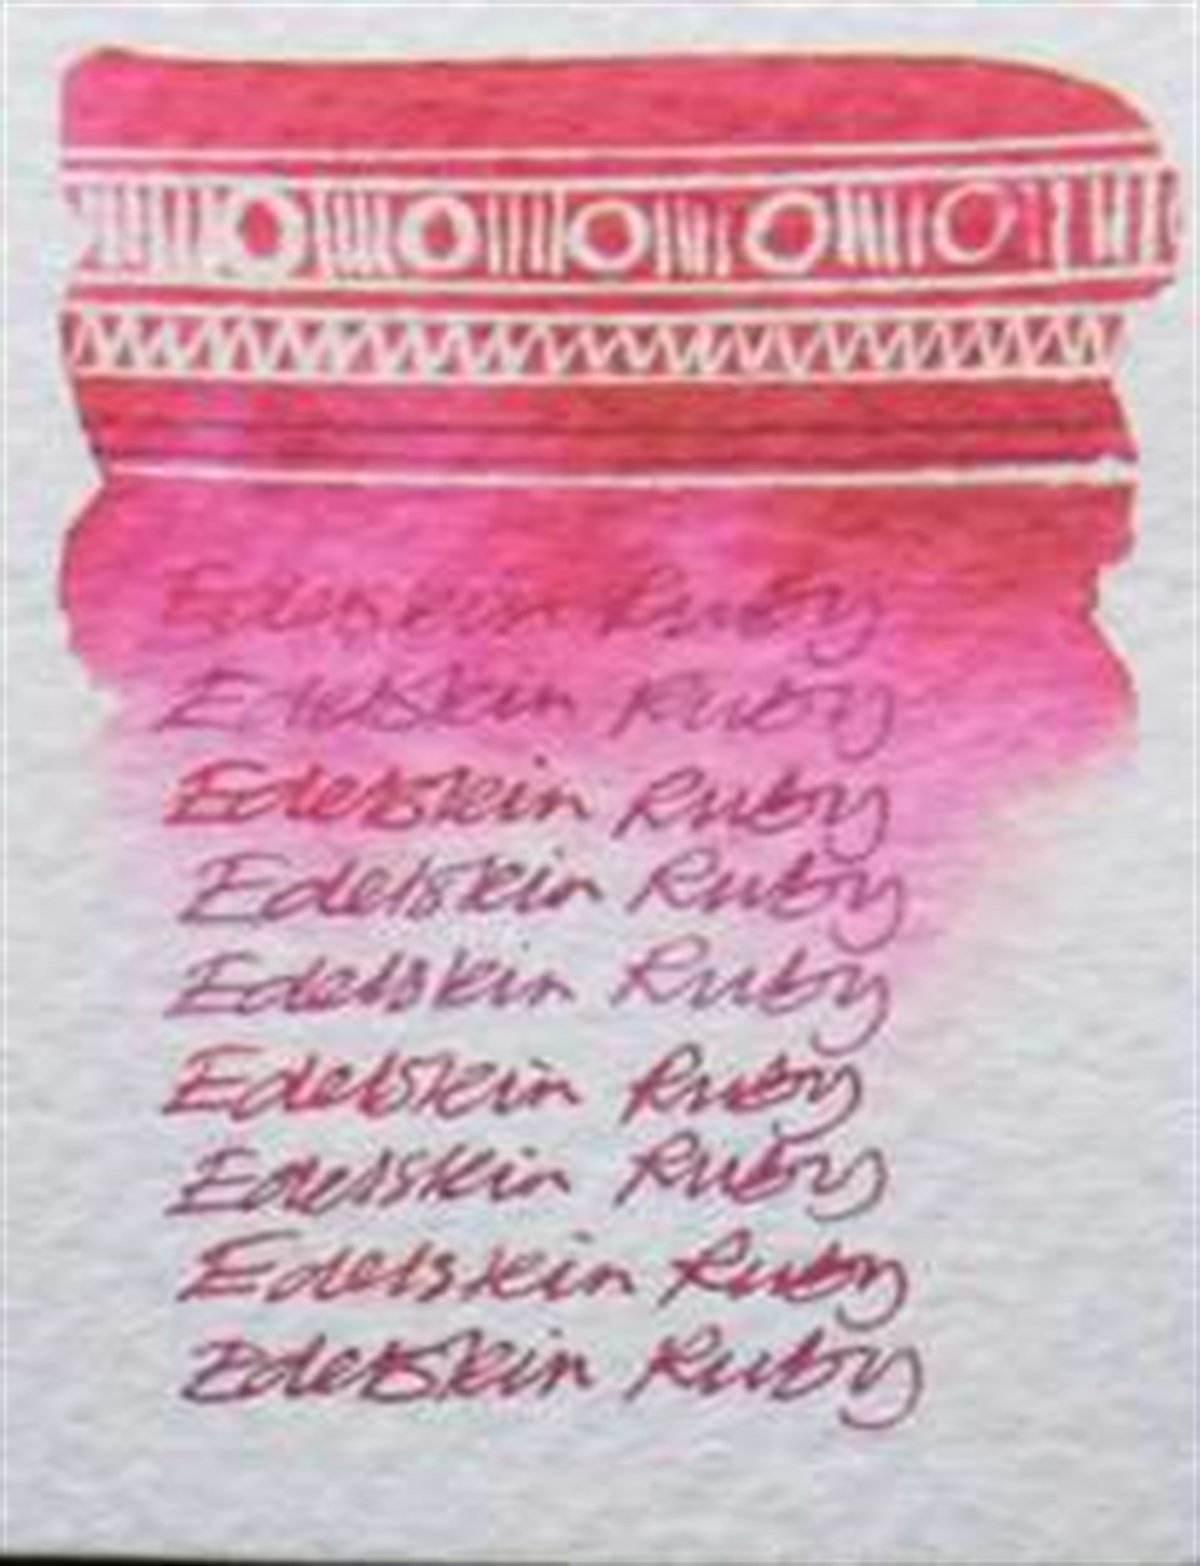 Edelstein Ruby
Edelstein Ruby
Edelstein Ruby
Edelstein Ruby
Edelstein Ruby
Edelstein Ruby
Edelstein Ruby
Edelstein Ruby
Edelstein Ruby